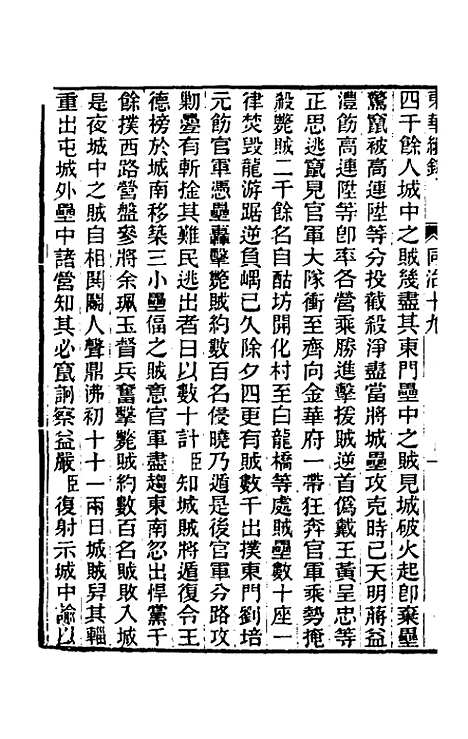 東華續錄 同治十九 一
四千餘人城中之賊幾盡其東門壘中之賊見城破火起卽棄壘
驚竄被高連陞等分投截殺淨盡當將城壘攻克時已天明蔣益
澧飭高連陞等卽率各營乘勝進擊援賊逆首僞戴王黃呈忠等
正思逃竄見官軍大隊衝至齊向金華府一帶狂奔官軍乘勢掩
殺斃賊二千餘名自酤坊開化村至白龍橋等處賊壘數十座一
律焚毀龍游踞逆負嵎已久除夕四更有賊數千出撲東門劉培
元飭官軍憑壘轟擊斃賊約數百名侵曉乃遁是後官軍分路攻
剿壘有斬捡其難民逃出者日以數十計臣知城賊將遁復令王
德榜於城南移築三小壘偪之賊意官軍盡趨東南忽出悍黨千
餘撲西路營盤參將余珮玉督兵奮擊斃賊約數百名賊敗入城
是夜城中之賊自相鬨鬭人聲鼎沸初十十一兩日城賊舁其輜
重出屯城外壘中諸營知其必竄詗察益嚴臣復射示城中諭以